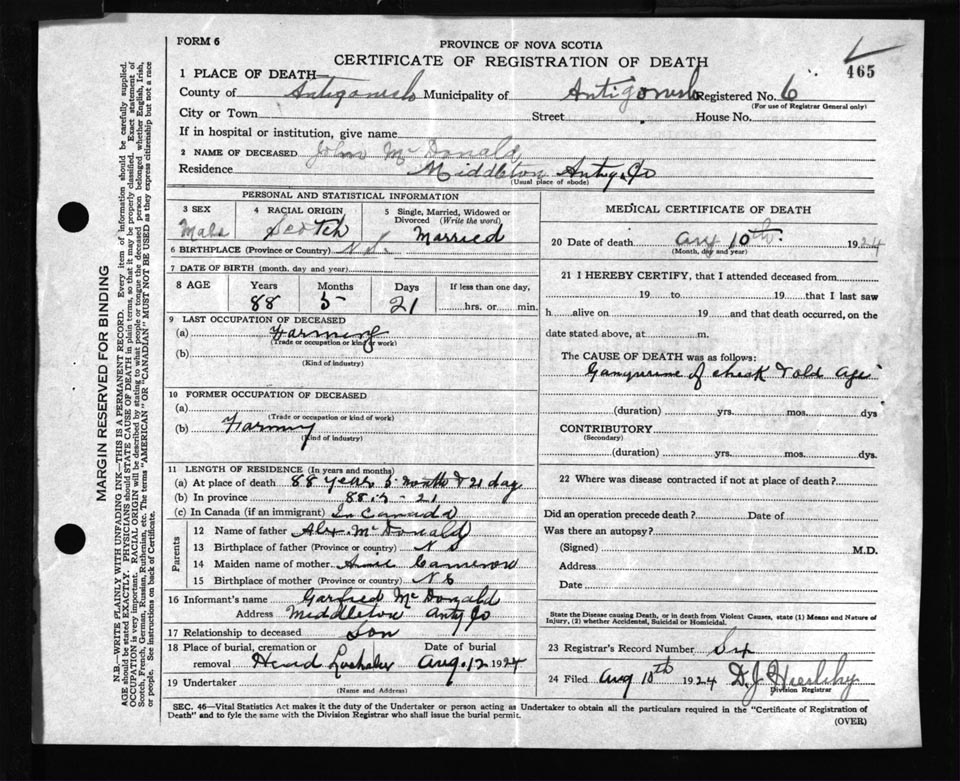 FORM 6
PROVINCE OF NOVA SCOTIA
CERTIFICATE OF REGISTRATION OF DEATH
465
1 PLACE OF DEATH—
County of Antigonish Municipality of Antigonish Registered No. 6
(For use of Registrar General only)
City or Town Street House No.
If in hospital or institution, give name
2 NAME OF DECEASED John McDonald
Residence Middleton Antig. Co
(Usual place of abode)
PERSONAL AND STATISTICAL INFORMATION
3 SEX Male
4 RACIAL ORIGIN Scotch
5 Single, Married, Widowed or Divorced (Write the word) Married
6 BIRTHPLACE (Province or Country) N.S.
7 DATE OF BIRTH (month, day and year)
8 AGE Years Months Days If less than one day,
88 5 21 hrs. or min.
9 LAST OCCUPATION OF DECEASED
(a) Farming
(Trade or occupation or kind of work)
(b)
(Kind of industry)
10 FORMER OCCUPATION OF DECEASED
(a)
(Trade or occupation or kind of work)
(b) Farming
(Kind of industry)
11 LENGTH OF RESIDENCE (In years and months)
(a) At place of death 88 years 5 months & 21 day
(b) In province 88 - 5 - 21
(c) In Canada (if an immigrant) In Canada
Parents
12 Name of father Alex McDonald
13 Birthplace of father (Province or country) N S
14 Maiden name of mother Cameron
15 Birthplace of mother (Province or country) N S
16 Informant's name Garfied McDonald
Address Middleton Antg Co
17 Relationship to deceased Son
18 Place of burial, cremation or Date of burial
removal Lochaber Aug. 12 1924
19 Undertaker
(Name and Address)
MEDICAL CERTIFICATE OF DEATH
20 Date of death Aug 10th 1924
(Month, day and year)
21 I HEREBY CERTIFY, that I attended deceased from
19 to 19 that I last saw
h alive on 19 and that death occurred, on the
date stated above, at m.
The CAUSE OF DEATH was as follows:
of cheek & old Age
(duration) yrs. mos. dys
CONTRIBUTORY
(Secondary)
(duration) yrs. mos. dys.
22 Where was disease contracted if not at place of death?
Did an operation precede death? Date of
Was there an autopsy?
(Signed) M.D.
Address
Date
State the Disease causing Death, or in death from Violent Causes, state (1) Means and Nature of
Injury, (2) whether Accidental, Suicidal or Homicidal.
23 Registrar's Record Number Six
24 Filed Aug 10th 1924 D. J.
Division Registrar
SEC. 46—Vital Statistics Act makes it the duty of the Undertaker or person acting as Undertaker to obtain all the particulars required in the "Certificate of Registration of
Death" and to fyle the same with the Division Registrar who shall issue the burial permit.
(OVER)
MARGIN RESERVED FOR BINDING
N.B.—WRITE PLAINLY WITH UNFADING INK—THIS IS A PERMANENT RECORD. Every item of information should be carefully supplied.
AGE should be stated EXACTLY. PHYSICIANS should STATE CAUSE OF DEATH in plain terms, so that it may be properly classified. Exact statement of
OCCUPATION is very important. RACIAL ORIGIN will be described by stating to what people or tongue the deceased person belonged whether English, Irish,
Scotch, French, German, Russian, Ruthenian, etc. The terms "AMERICAN" OR "CANADIAN" MUST NOT BE USED as they express citizenship but not a race
or people. See instructions on back of Certificate.